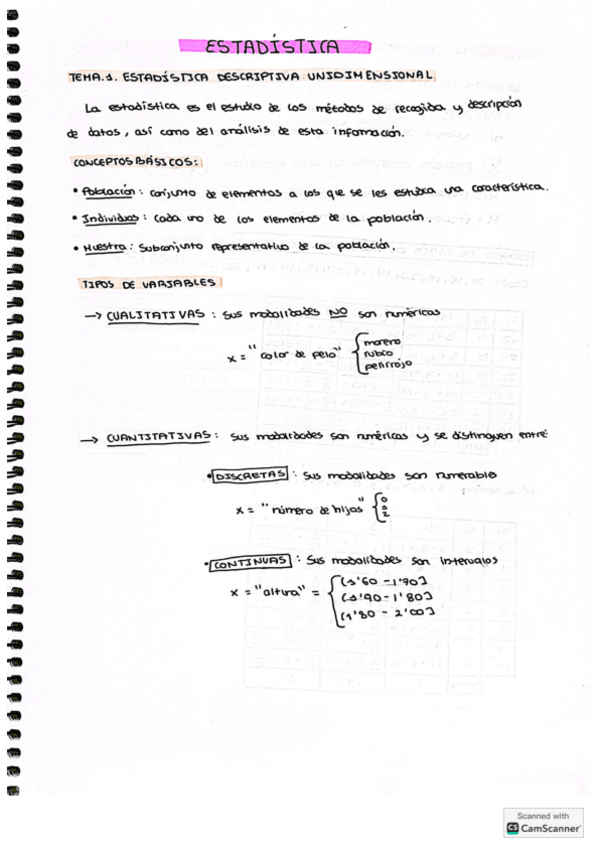 ESTADÍSTICA
TEMA.1. ESTADÍSTICA DESCRIPTIVA UNIDIMENSIONAL
La estadística es el estudio de los métodos de recogida y descripción
de datos, así como del análisis de esta información.
CONCEPTOS BÁSICOS:
• Población: conjunto de elementos a los que se les estudia una característica.
• Individuos: cada uno de los elementos de la población.
• Muestra: Subconjunto representativo de la población.
TIPOS DE VARIABLES
→ CUALITATIVAS: Sus modalidades NO son numéricas
x = "color de pelo" { moreno
rubio
pelirrojo
→ CUANTITATIVAS: Sus modalidades son numéricas y se distinguen entre
• DISCRETAS: Sus modalidades son numerable
x = "número de hijos" { 0
2
• CONTINUAS: Sus modalidades son intervalos
x = "altura" = { (1'60 - 1'70]
(1'70 - 1'80]
(1'80 - 2'00]
Scanned with
CS CamScanner